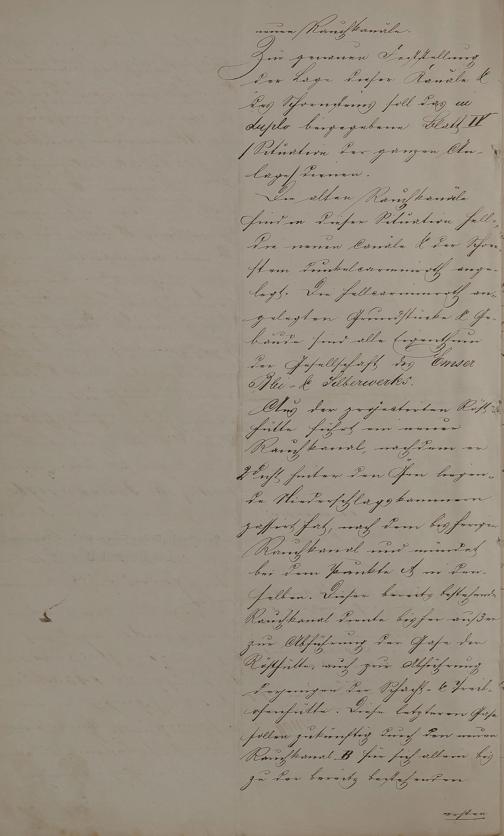 neuen Rauchkanäle.
Zur genauen Feststellung
der Lage dieser Kanäle &
des Schornsteins soll das in
duplo beigegebene Blatt IV
/ Situation der ganzen An-
lage / dienen.
Die alten Rauchkanäle
sind in dieser Situation hell-,
die neuen Canäle & der Schorn-
stein dunkelcarminroth ange-
legt. Die hellcarminroth an-
gelegten Grundstücke & Ge-
bäude sind alle Eigenthum
der Gesellschaft des Emser
Blei- & Silberwerks.
Aus der projectirten Röst-
hütte führt ein neuer
Rauchkanal, nachdem er
dicht hinter den Öfen liegen-
de Niederschlagskammern
passirt hat, nach dem bisherigen
Rauchkanal und mündet
bei dem Punkte A in den-
selben. Dieser bereits bestehende
Rauchkanal diente bisher außer
zur Abführung der Gase der
Rösthütte, auch zur Abführung
derjenigen der Schacht- & Treib-
ofenhütte. Diese letzteren Gase
sollen zukünftig durch den neuen
Rauchkanal B für sich allein bis
zu der bereits bestehenden
ersten